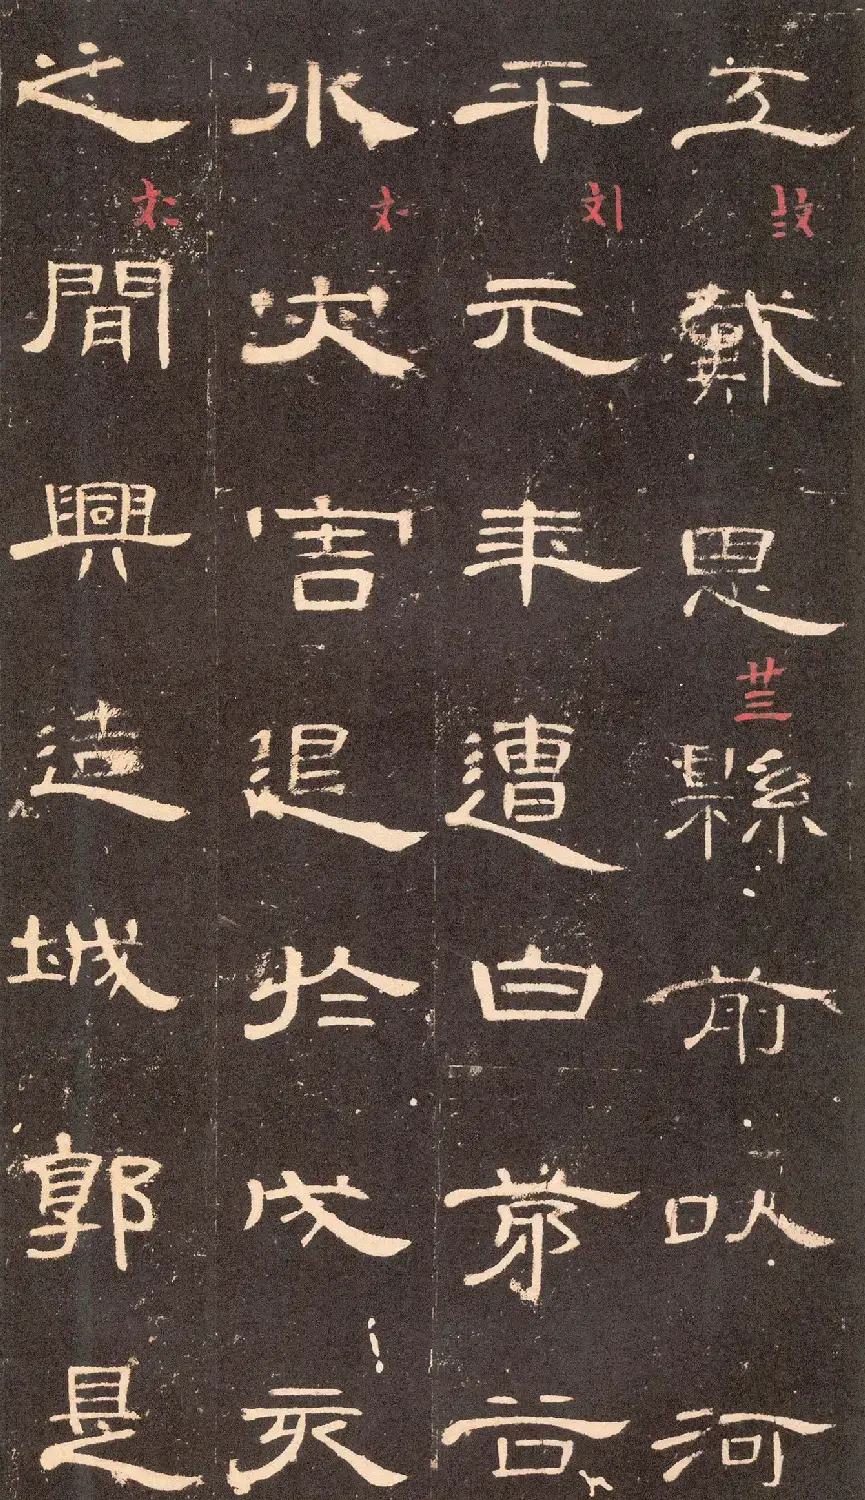 工戴恩縣前以河
平元年遭白茅谷
水灾害退於戌亥
之閒興造城郭是